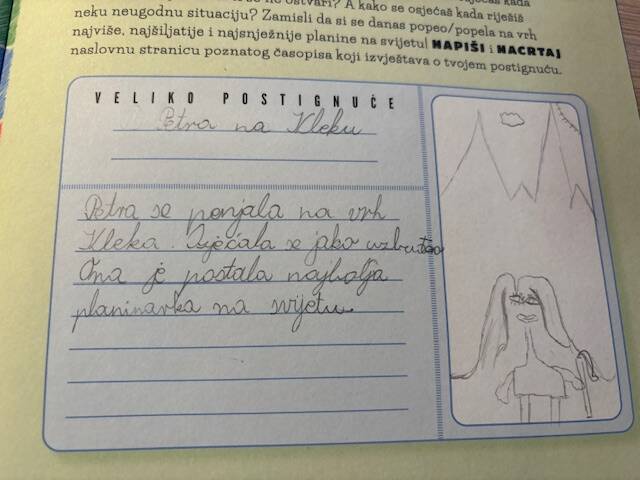 neku neugodnu situaciju? Zamisli da si se danas popeo/popela na vrh
najviše, najšiljatije i najsnježnije planine na svijetu! NAPIŠI i NACRTAJ
naslovnu stranicu poznatog časopisa koji izvještava o tvojem postignuću.
VELIKO POSTIGNUĆE
Petra na Kleku
Petra se penjala na vrh
Kleka. Osjećala se jako uzbuđeno
Ona je postala najbolja
planinarka na svijetu.